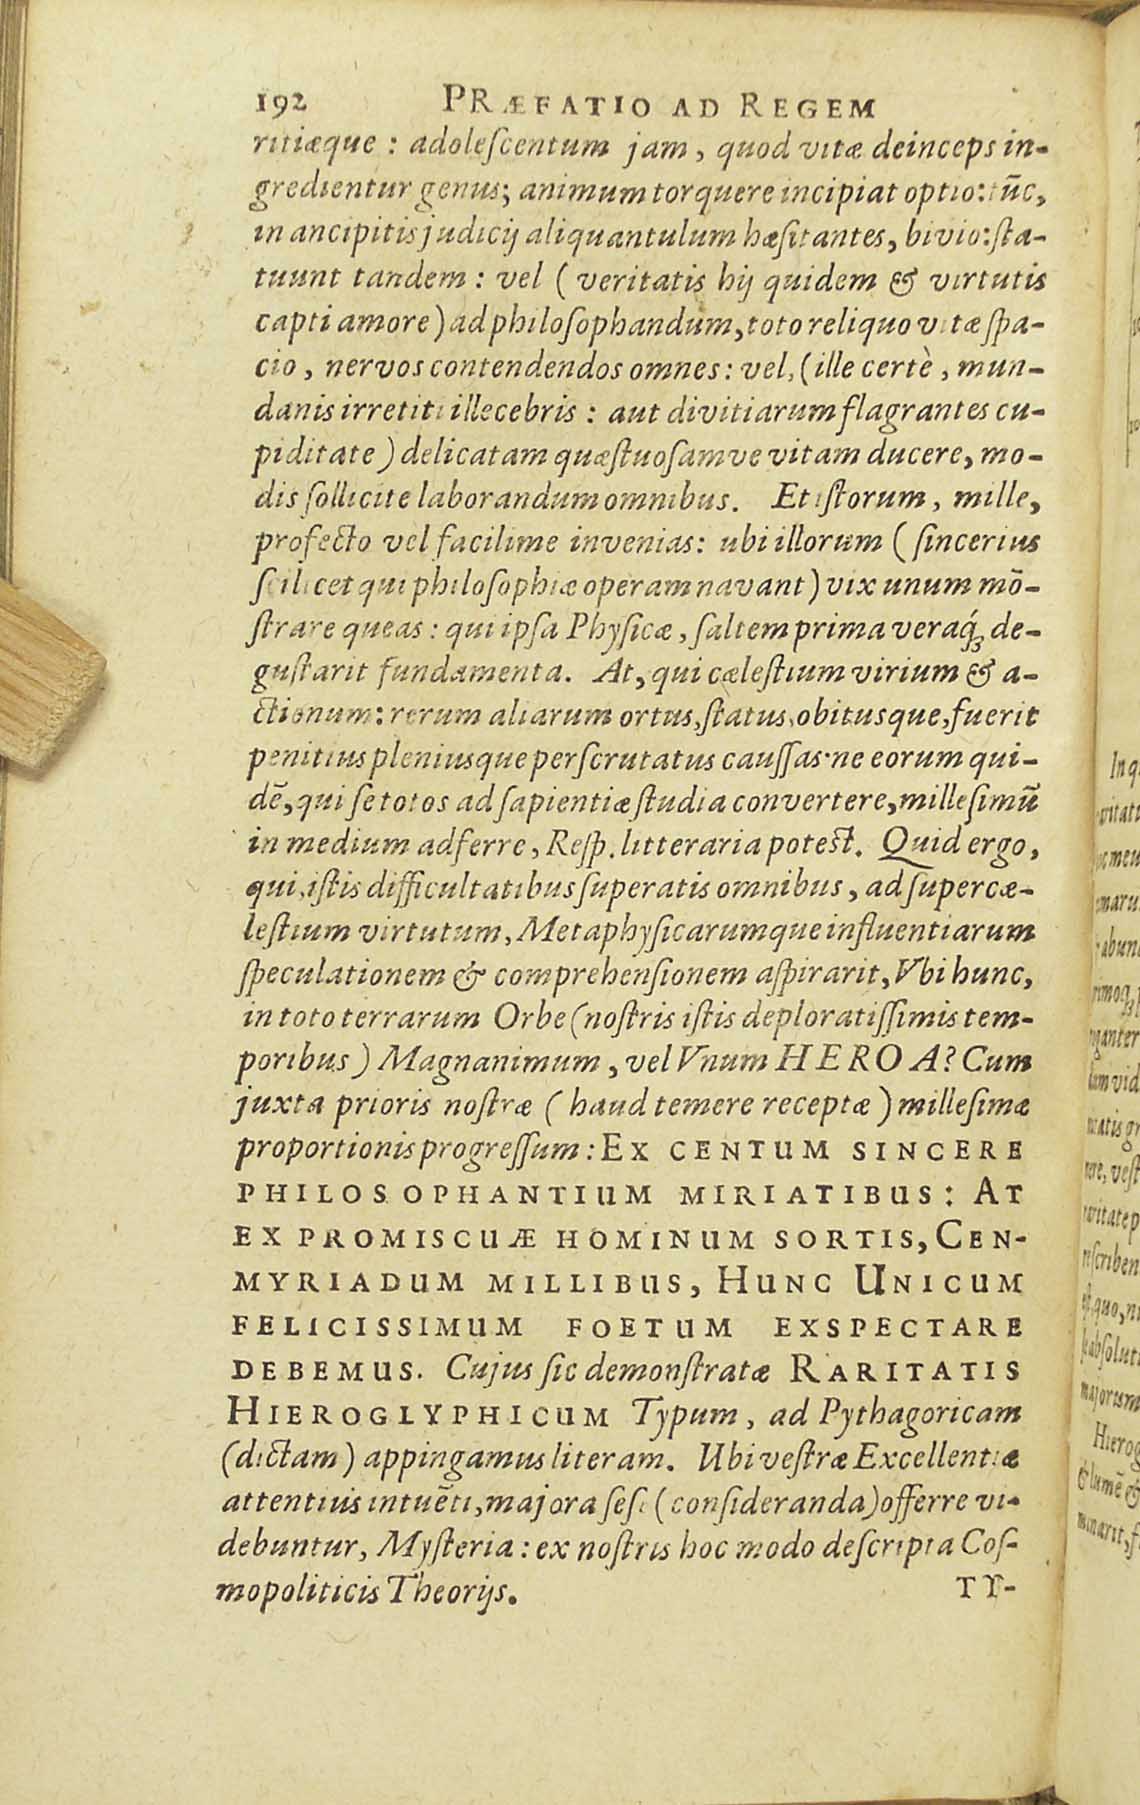 192 PRÆFATIO AD REGEM
ritiæque : adoleſcentum jam, quod vitæ deinceps in-
gredientur genus; animum torquere incipiat optio: tūc,
in ancipitis judicij aliquantulum hæſitantes, bivio: ſta-
tuunt tandem : vel ( veritatis hij quidem & virtutis
capti amore) ad philoſophandum, toto reliquo vitæ ſpa-
cio, nervos contendendos omnes: vel, (ille certè, mun-
danis irretiti illecebris : aut divitiarum flagrantes cu-
piditate ) delicatam quæſtuoſamve vitam ducere, mo-
dis ſollicite laborandum omnibus. Et iſtorum, mille,
profecto vel facilime invenias: ubi illorum ( ſincerius
ſcilicet qui philoſophiæ operam navant) vix unum mō-
ſtrare queas: qui ipſa Phyſicæ, ſaltem prima veraq́; de-
guſtarit fundamenta. At, qui cæleſtium virium & a-
ctionum: rerum aliarum ortus, ſtatus, obitusque, fuerit
penitius pleniusque perſcrutatus cauſſas: ne eorum qui-
dē, qui ſe totos ad ſapientiæ ſtudia convertere, milleſimū
in medium adferre, Reſp. litteraria poteſt. Quid ergo,
qui, iſtis difficultatibus ſuperatis omnibus, ad ſupercæ-
leſtium virtutum, Metaphyſicarumque influentiarum
ſpeculationem & comprehenſionem aſpirarit, Vbi hunc,
in toto terrarum Orbe (noſtris iſtis deploratiſſimis tem-
poribus) Magnanimum, vel Vnum HEROA? Cum
juxta prioris noſtræ ( haud temere receptæ ) milleſimæ
proportionis progreſſum: EX CENTUM SINCERE
PHILOSOPHANTIUM MIRIATIBUS: AT
EX PROMISCUÆ HOMINUM SORTIS, CEN-
MYRIADUM MILLIBUS, HUNC UNICUM
FELICISSIMUM FOETUM EXSPECTARE
DEBEMUS. Cujus ſic demonſtratæ RARITATIS
HIEROGLYPHICUM Typum, ad Pythagoricam
(dictam) appingamus literam. Ubi veſtræ Excellentiæ
attentius intuēti, majora ſeſe (conſideranda) offerre vi-
debuntur, Myſteria: ex noſtris hoc modo deſcripta Coſ-
mopoliticis Theorijs.
TY-